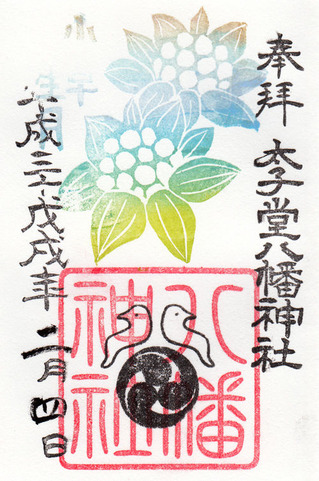 奉拝 太子堂八幡神社
小
平成三十戊戌年 二月四日
八幡
神社